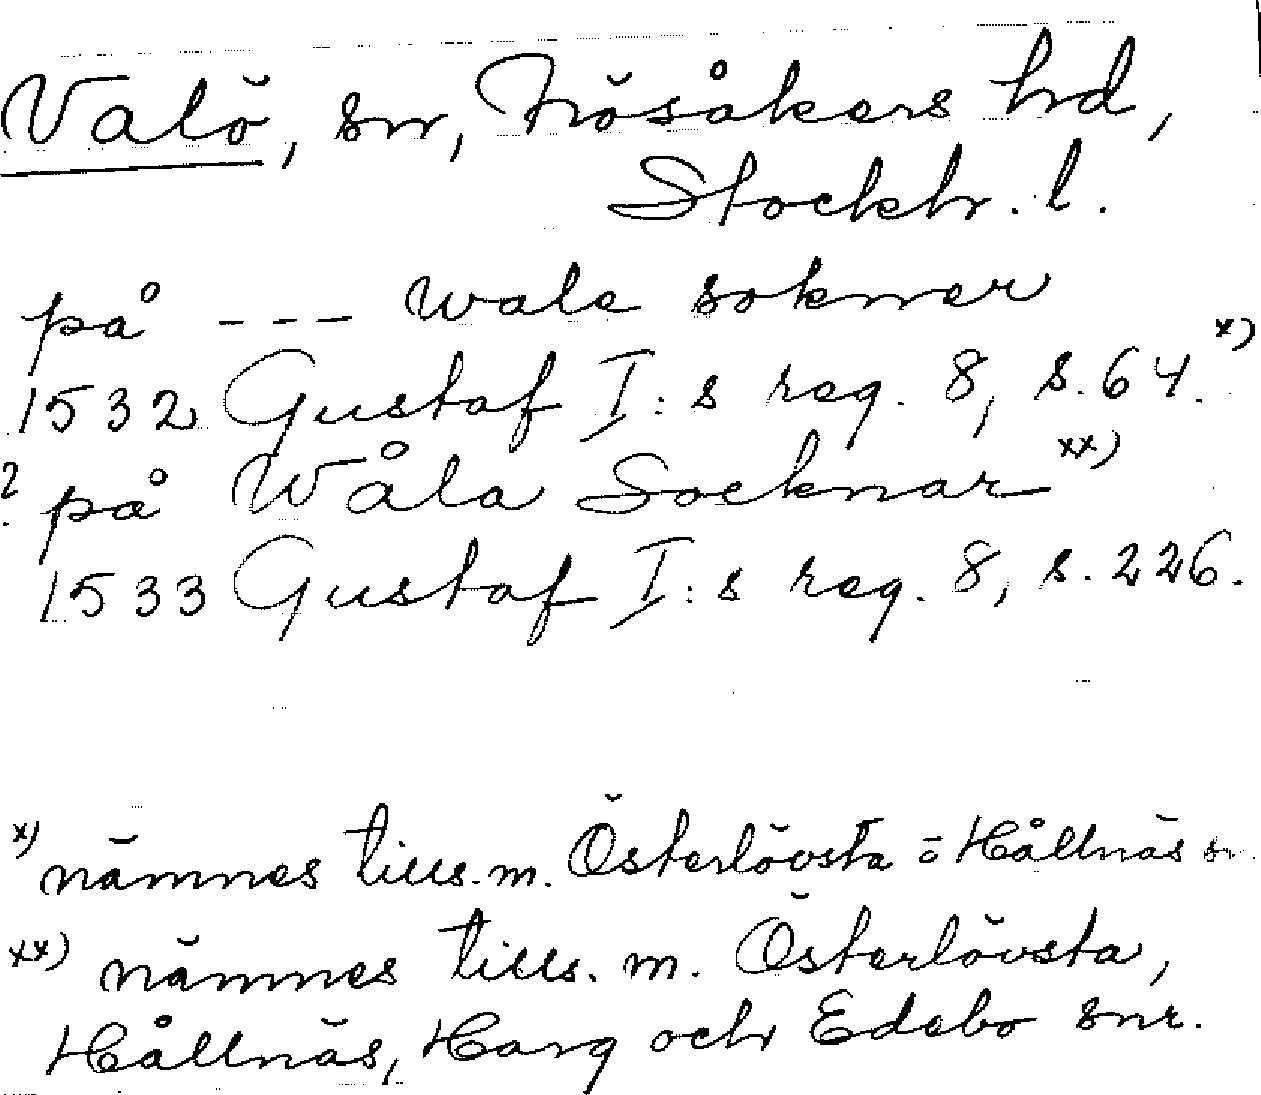 Valö, sn, Frösåkers hd,
Stockh. l.
på --- wale soknner
1532 Gustaf I:s reg. 8, s. 64. x)
? på Wåla Socknar xx)
1533 Gustaf I:s reg. 8, s. 226.
x) nämnes tills. m. Österlövsta o Hållnäs sn
xx) nämnes tills. m. Österlövsta,
Hållnäs, Harg och Edebo snr.